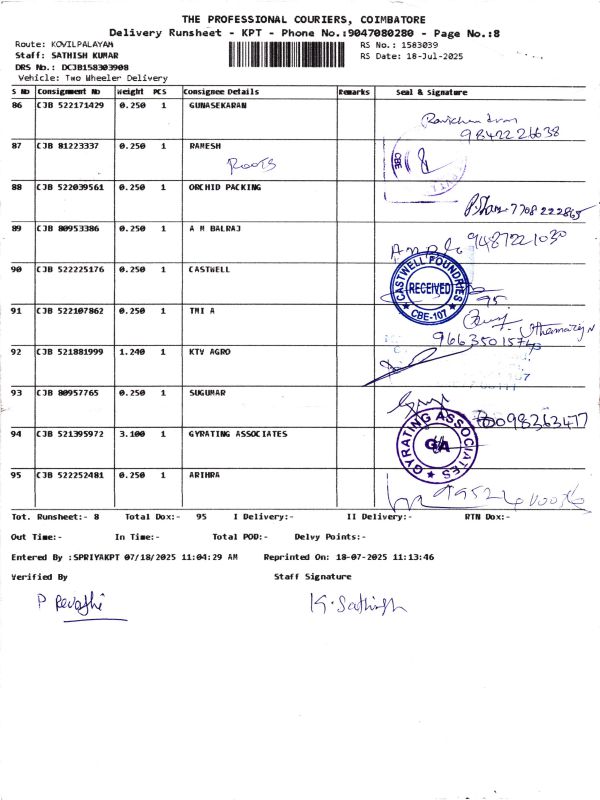 THE PROFESSIONAL COURIERS, COIMBATORE
Delivery Runsheet - KPT - Phone No.:9047080280 - Page No.:8
Route: KOVILPALAYAM RS No.: 1583039
Staff: SATHISH KUMAR RS Date: 18-Jul-2025
DRS No.: DCJB158303908
Vehicle: Two Wheeler Delivery
S No Consignment No Weight PCS Consignee Details Remarks Seal & Signature
86 CJB 522171429 0.250 1 GUNASEKARAN
Ravichandran
9842226638
87 CJB 81223337 0.250 1 RAMESH
ROOTS
CBE
88 CJB 522039561 0.250 1 ORCHID PACKING
7708222865
89 CJB 80953386 0.250 1 A M BALRAJ
9487221030
90 CJB 522225176 0.250 1 CASTWELL
CASTWELL FOUNDRIES
RECEIVED
CBE-107
95
91 CJB 522107862 0.250 1 TMI A
9663501574
92 CJB 521881999 1.240 1 KTV AGRO
93 CJB 80957765 0.250 1 SUGUMAR
98363477
94 CJB 521395972 3.100 1 GYRATING ASSOCIATES
GYRATING ASSOCIATES
GA
95 CJB 522252481 0.250 1 ARIHRA
Tot. Runsheet:- 8 Total Dox:- 95 I Delivery:- II Delivery:- RTN Dox:-
Out Time:- In Time:- Total POD:- Delvy Points:-
Entered By :SPRIYAKPT 07/18/2025 11:04:29 AM Reprinted On: 18-07-2025 11:13:46
Verified By Staff Signature
P Revathi K. Sathish